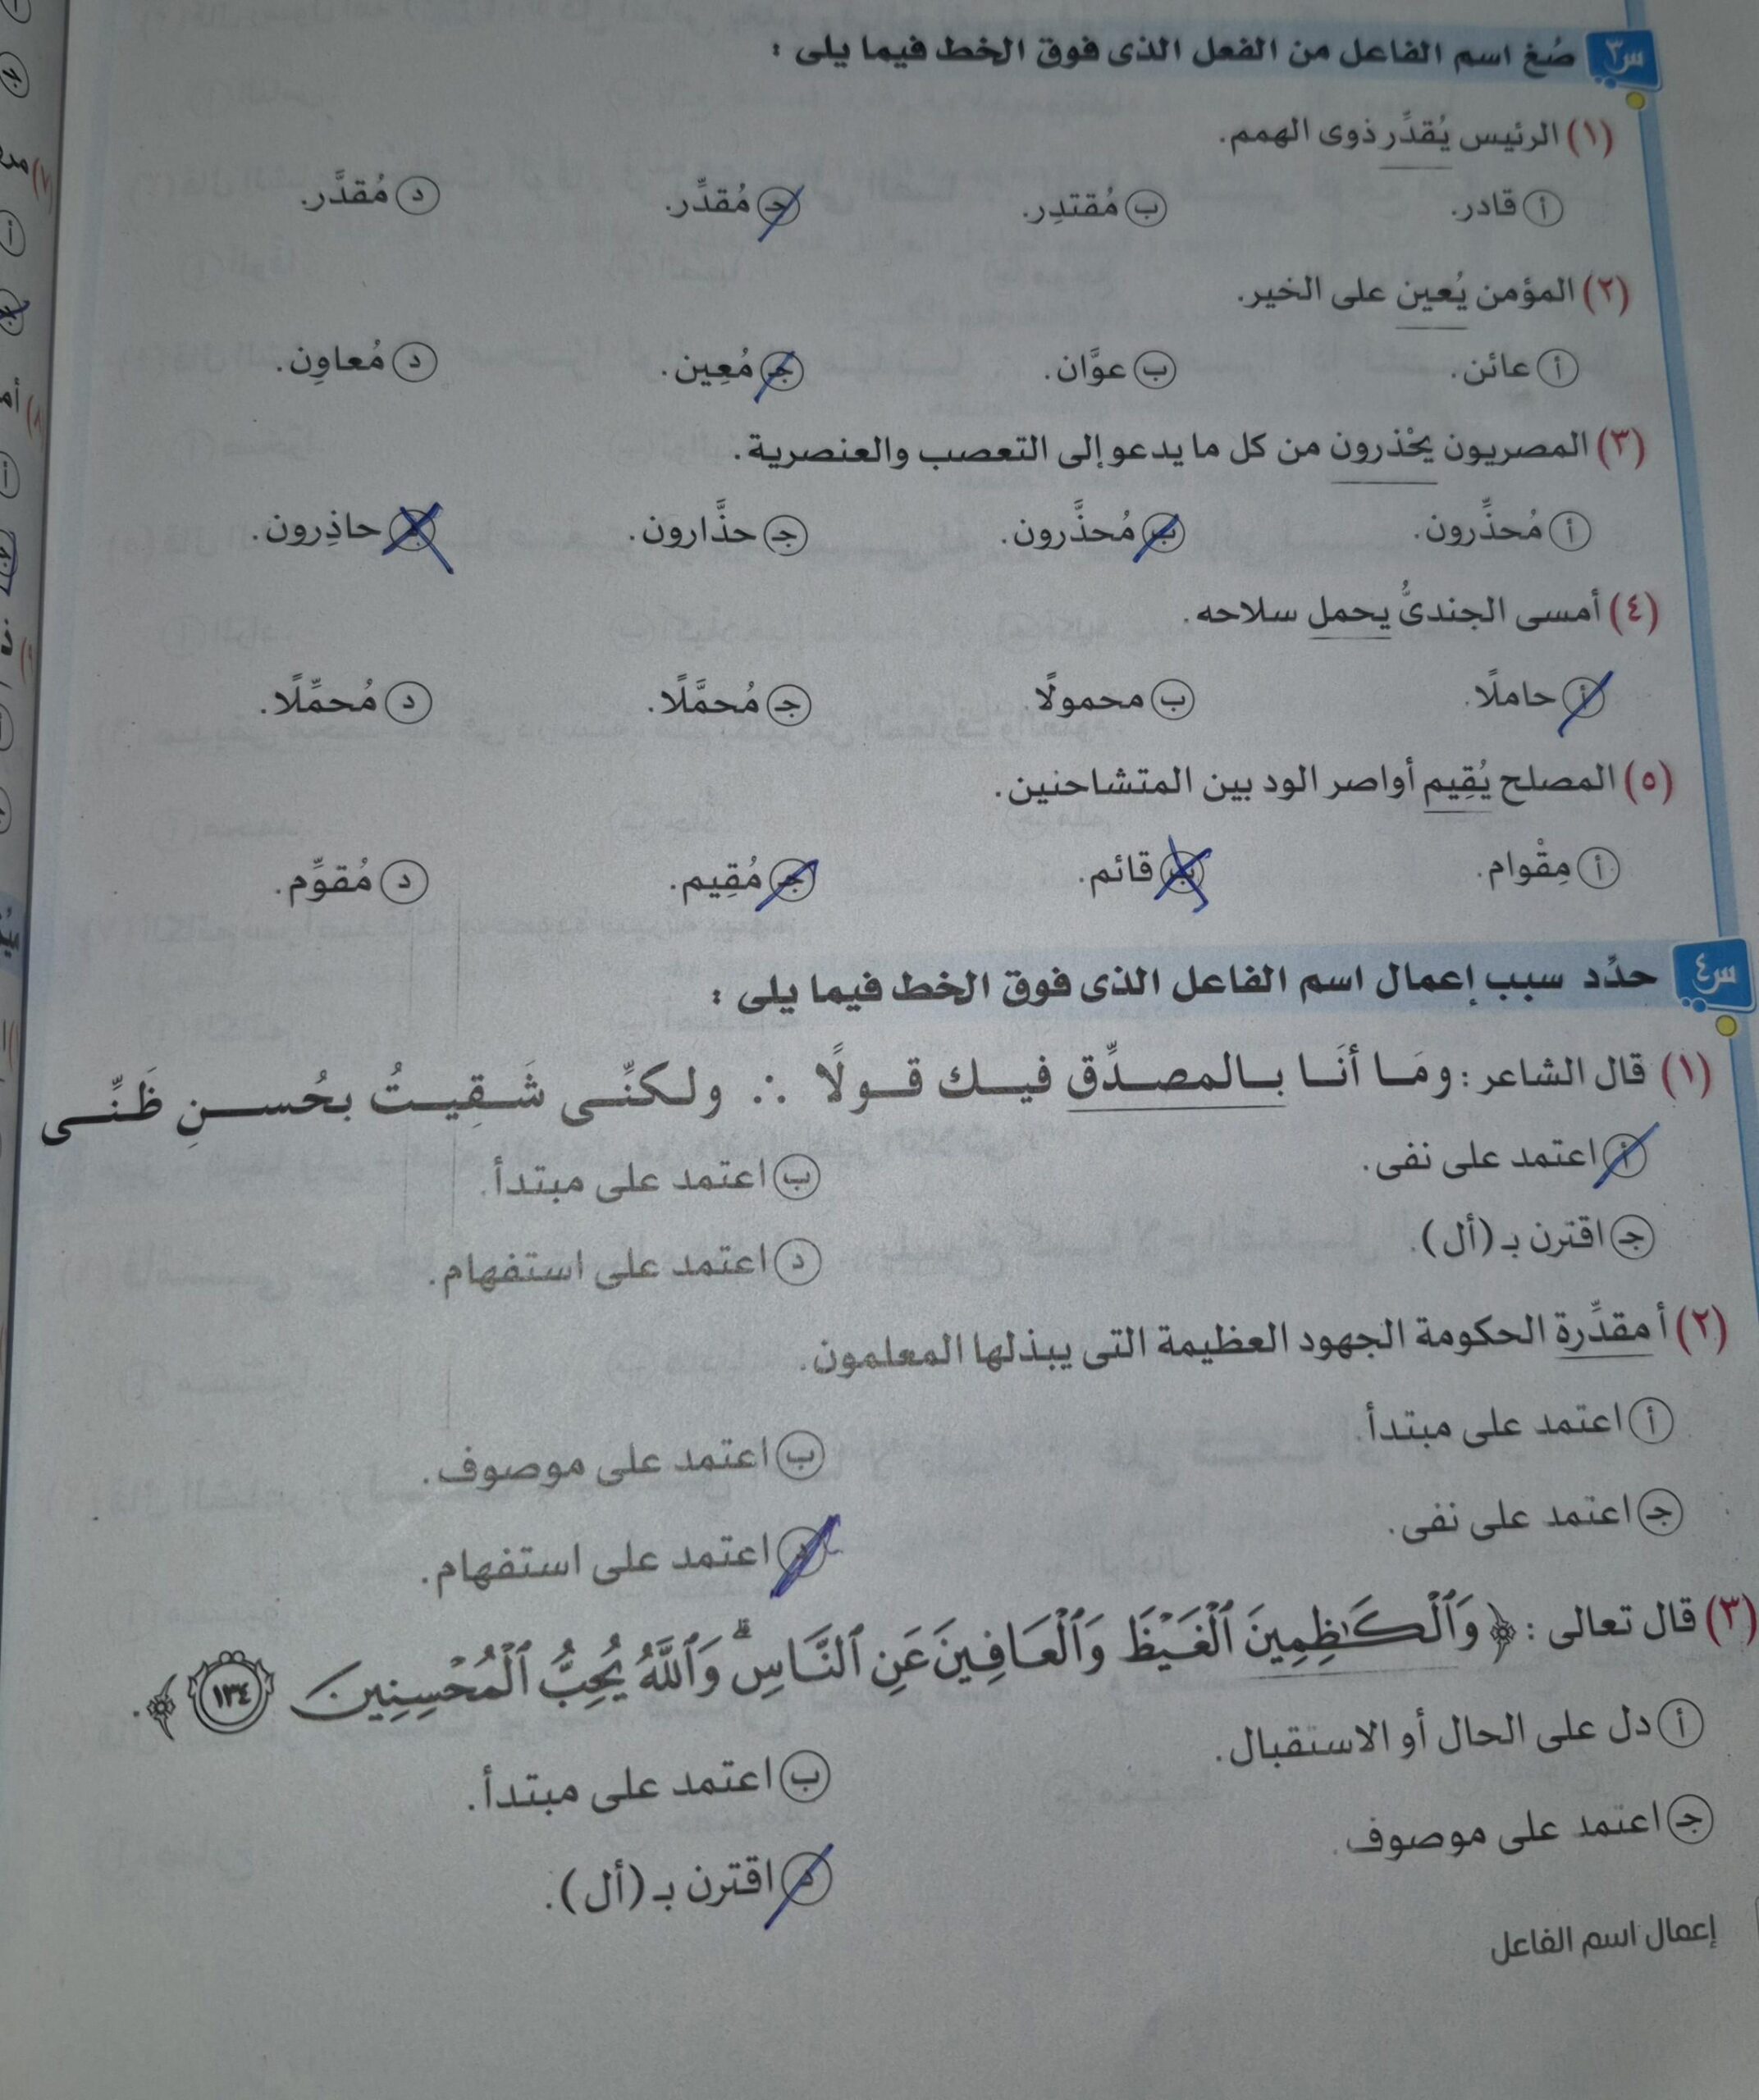 س٣ صُغ اسم الفاعل من الفعل الذى فوق الخط فيما يلى :
(١) الرئيس يُقدِّر ذوى الهمم.
أ قادر. ب مُقتدِر. جـ مُقدِّر. د مُقدَّر.
(٢) المؤمن يُعين على الخير.
أ عائن. ب عوَّان. جـ مُعِين. د مُعاوِن.
(٣) المصريون يحْذرون من كل ما يدعو إلى التعصب والعنصرية.
أ مُحذِّرون. ب مُحذَّرون. جـ حذَّارون. د حاذِرون.
(٤) أمسى الجندىُّ يحمل سلاحه.
أ حاملًا. ب محمولًا. جـ مُحمَّلًا. د مُحمِّلًا.
(٥) المصلح يُقِيم أواصر الود بين المتشاحنين.
أ مِقْوام. ب قائم. جـ مُقِيم. د مُقوِّم.
س٤ حدِّد سبب إعمال اسم الفاعل الذى فوق الخط فيما يلى :
(١) قال الشاعر : ومَا أنَا بالمصدِّق فيك قولًا ∴ ولكنِّى شَقِيتُ بحُسنِ ظَنِّى
أ اعتمد على نفى. ب اعتمد على مبتدأ.
جـ اقترن بـ (أل). د اعتمد على استفهام.
(٢) أ مقدِّرة الحكومة الجهود العظيمة التى يبذلها المعلمون.
أ اعتمد على مبتدأ. ب اعتمد على موصوف.
جـ اعتمد على نفى. د اعتمد على استفهام.
(٣) قال تعالى : ﴿ وَٱلْكَٰظِمِينَ ٱلْغَيْظَ وَٱلْعَافِينَ عَنِ ٱلنَّاسِ ۗ وَٱللَّهُ يُحِبُّ ٱلْمُحْسِنِينَ ١٣٤ ﴾.
أ دل على الحال أو الاستقبال. ب اعتمد على مبتدأ.
جـ اعتمد على موصوف. د اقترن بـ (أل).
إعمال اسم الفاعل